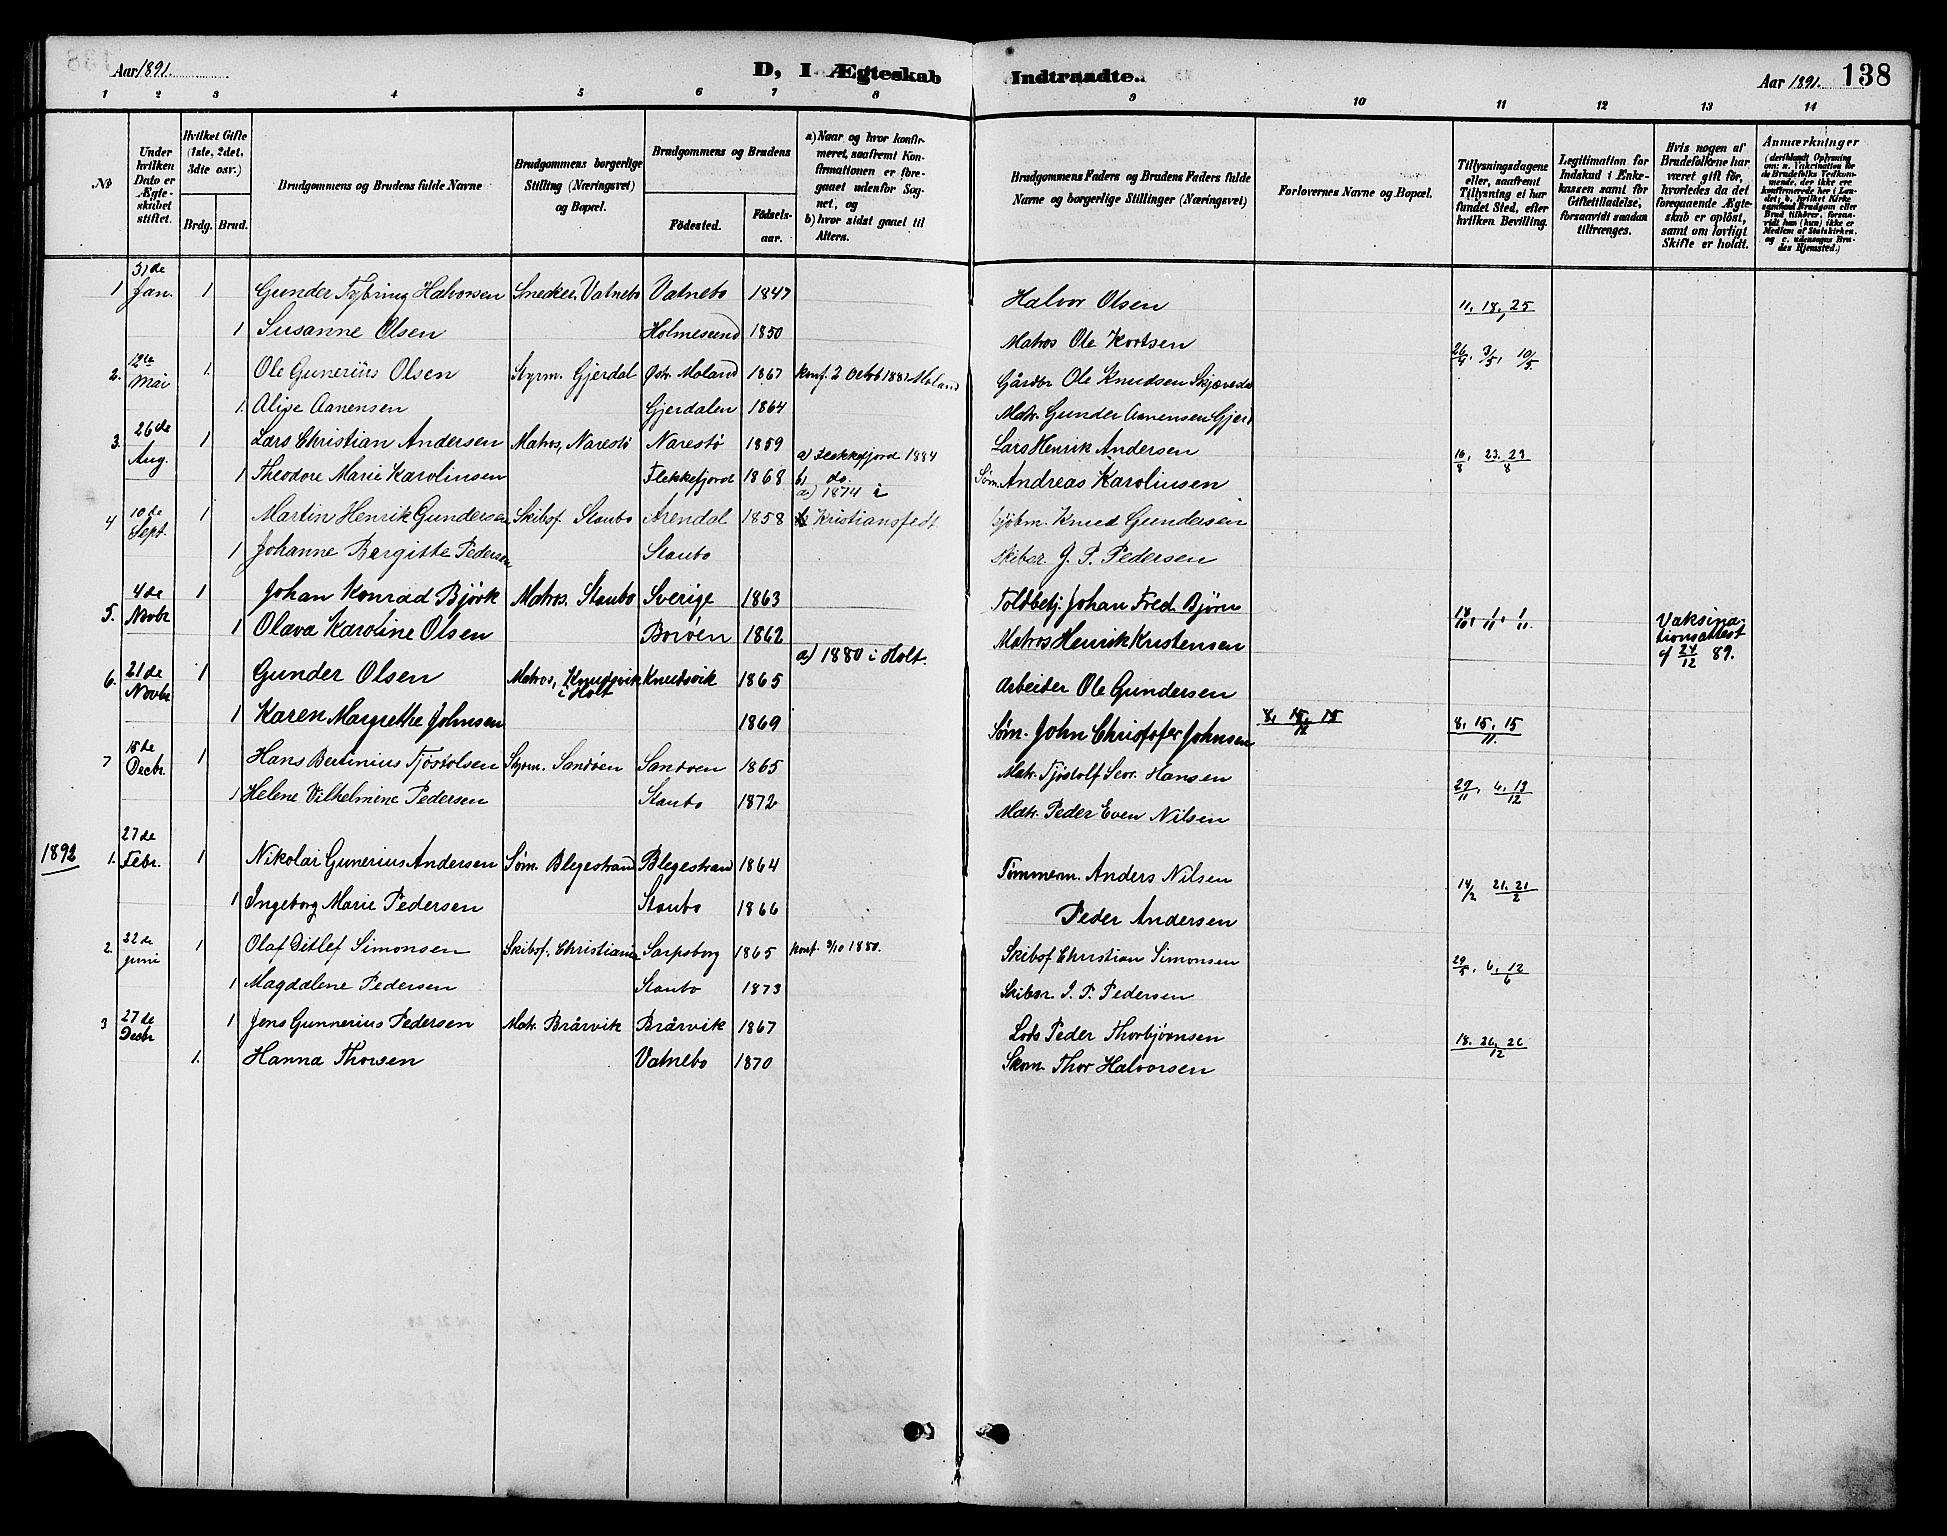 Aar 1891.
D, I Ægteskab Indtraadte.
Aar 1891. 138
1 2 3 4 5 6 7 8 9 10 11 12 13 14
No
Under hvilken Dato er Ægteskabet stiftet.
Hvilket Gifte (1ste, 2det, 3dte osv.)
Brdg. Brud.
Brudgommens og Brudens fulde Navne
Brudgommens borgerlige Stilling (Næringsvei) og Bopæl.
Brudgommens og Brudens
Födested. Födselsaar.
a) Naar og hvor konfirmeret, saafremt Konfirmationen er foregaaet udenfor Sognet, og b) hvor sidst gaaet til Alters.
Brudgommens Faders og Brudens Faders fulde Navne og borgerlige Stillinger (Næringsvei)
Forlovernes Navne og Bopæl.
Tillysningsdagene eller, saafremt Tillysning ei har fundet Sted, efter hvilken Bevilling.
Legitimation for Indskud i Enkekassen samt for Giftetilladelse, forsaavidt saadan tiltrænges.
Hvis nogen af Brudefolkene har været gift før, hvorledes da det foregaaende Ægteskab er oplöst, samt om lovligt Skifte er holdt.
Anmærkninger (deriblandt Oplysning om: a. Vakcination for de Brudefolks Vedkommende, der ikke ere konfirmerede her i Landet; b. hvilket Kirkesamfund Brudgom eller Brud tilhörer, forsaavidt han (hun) ikke er Medlem af Statskirken, og c. udensogns Brudes Hjemsted.)
1 31 de Jan. 1 Gunder Fybring Halvorsen Snedker. Vatnebo Vatnebo 1847 Halvor Olsen 11, 18, 25
1 Susanne Olsen Holmesund 1850 Matros Ole Kortsen
2. Mai 1. Ole Gunerius Olsen Styrm. Gjerdal Østr. Moland 1867 Konf. 2 Octob 1881 Moland Gårdbr Ole Knudsen 26/4, 3/5, 10/5
1. Alise Aanensen Gjerdalen 1864 Matr. Gunder Aanensen
3. 26 de Aug. 1 Lars Christian Andersen Matros, Narestö Narestö 1859 Lars Henrik Andersen 16/8, 23. 23/8
1 Theodore Marie Karolinsen Flekkefjord 1868 a) Flekkefjord 1884 b) do. Søm. Andreas Karolinsen
4 10 de Sept. 1 Martin Henrik Gundersen Skibsf. Staubo Arendal 1858 a) 1874 i Kristiansfedt Knud Gundersen
1 Johanne Bergitte Pedersen Staubo Skibsr. J. P. Pedersen
5. 4 de Novbr 1 Johan Konrad Björk Matros. Staubo Sverige 1863 Toldbetj. Johan Fred. Björn 18/10, 1/11, 1/11. Vaksinationsattest af 24/12 89.
1 Olava Karoline Olsen Borøen 1862 Matros Henrik Kristensen
6. 21 de Novbr 1 Gunder Olsen Matros, Knudsvik i Holt Knudsvik 1865 a) 1880 i Holt. Arbeider Ole Gundersen
1 Karen Margrethe Johnsen 1869 Søm. John Christofer Johnsen 8, 15, 15/11.
7 18 de Decbr. 1 Hans Bertinius Tjöstolsen Styrm. Sandøen Sandøen 1865 Matr. Tjöstolf Sevr. Hansen 29/11, 6, 13/12
1 Helene Vilhelmine Pedersen Staubo 1872 Matr. Peder Even Nilsen
1892
1. 27 de Febr. 1 Nikolai Gunerius Andersen Søm. Blegestrand Blegestrand 1864 Tømmerm. Anders Nilsen 14/2 21. 21/2
1 Ingeborg Marie Pedersen Staubo 1866 Peder Andersen
2. 22 de Juni 1 Olaf Ditlef Simonsen Skibsf. Christiania Sarpsborg 1865 Konf. 3/10 1880. Skibsf Christian Simonsen 29/5, 6, 12/6
1 Magdalene Pedersen Staubo 1873 Skibsr. J. P. Pedersen
3 27 de Decbr 1 Jens Gunnerius Pedersen Matr. Brårvik Brårvik 1867 Lods Peder Thorbjørnsen 18. 26. 26/12
1. Hanna Thorsen Vatnebo 1870 Skom. Thor Halvorsen